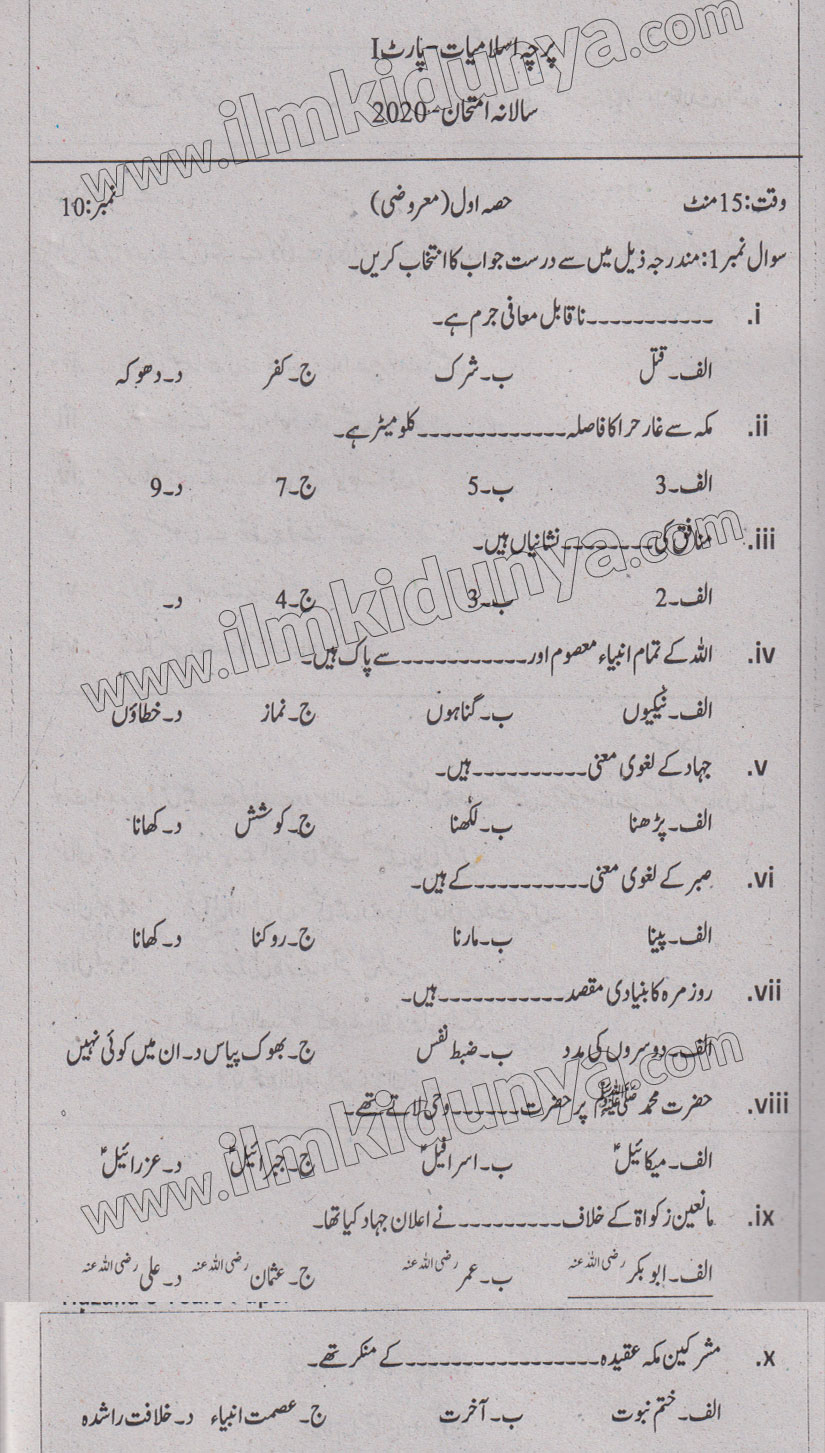 پرچہ اسلامیات-پارٹ I
سالانہ امتحان-2020
www.ilmkidunya.com
وقت: 15 منٹ حصہ اول (معروضی) نمبر: 10
سوال نمبر 1: مندرجہ ذیل میں سے درست جواب کا انتخاب کریں۔
i. ___________ ناقابل معافی جرم ہے۔
الف۔ قتل ب۔ شرک ج۔ کفر د۔ دھوکہ
ii. مکہ سے غار حرا کا فاصلہ ___________ کلومیٹر ہے۔
الف۔ 3 ب۔ 5 ج۔ 7 د۔ 9
iii. منافق کی ________ نشانیاں ہیں۔
الف۔ 2 ب۔ 3 ج۔ 4 د۔
www.ilmkidunya.com
iv. اللہ کے تمام انبیاء معصوم اور ___________ سے پاک ہیں۔
الف۔ نیکیوں ب۔ گناہوں ج۔ نماز د۔ خطاؤں
v. جہاد کے لغوی معنی __________ ہیں۔
الف۔ پڑھنا ب۔ لکھنا ج۔ کوشش د۔ کھانا
vi. صبر کے لغوی معنی __________ کے ہیں۔
الف۔ پینا ب۔ مارنا ج۔ روکنا د۔ کھانا
vii. روزمرہ کا بنیادی مقصد ___________ ہیں۔
الف۔ دوسروں کی مدد ب۔ ضبط نفس ج۔ بھوک پیاس د۔ ان میں کوئی نہیں
viii. حضرت محمد ﷺ پر حضرت ______ وحی لاتے تھے۔
الف۔ میکائیلؑ ب۔ اسرافیلؑ ج۔ جبرائیلؑ د۔ عزرائیلؑ
www.ilmkidunya.com
ix. مانعین زکواۃ کے خلاف _________ نے اعلان جہاد کیا تھا۔
الف۔ ابو بکر رضی اللہ عنہ ب۔ عمر رضی اللہ عنہ ج۔ عثمان رضی اللہ عنہ د۔ علی رضی اللہ عنہ
x. مشرکین مکہ عقیدہ ________________ کے منکر تھے۔
الف۔ ختم نبوت ب۔ آخرت ج۔ عصمت انبیاء د۔ خلافت راشدہ